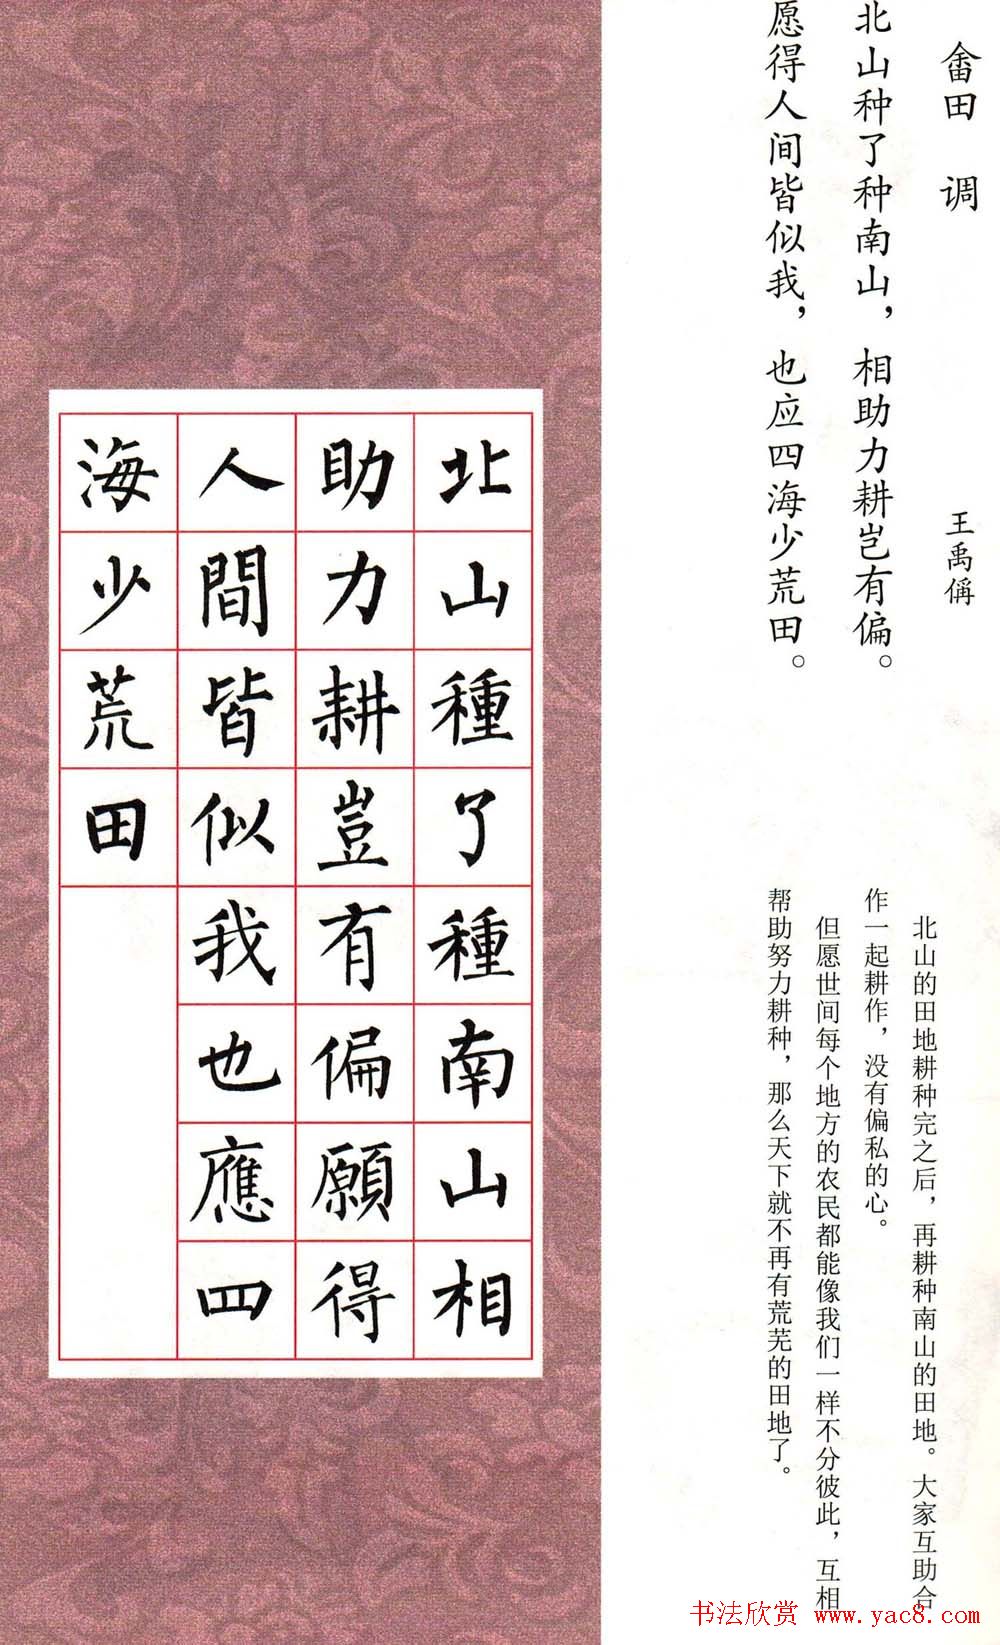 畲田 调
王禹偁
北山种了种南山，相助力耕岂有偏。
愿得人间皆似我，也应四海少荒田。
北山的田地耕种完之后，再耕种南山的田地。大家互助合
作一起耕作，没有偏私的心。
但愿世间每个地方的农民都能像我们一样不分彼此，互相
帮助努力耕种，那么天下就不再有荒芜的田地了。
北山種了種南山相
助力耕豈有偏願得
人間皆似我也應四
海少荒田
书法欣赏 www.yac8.com